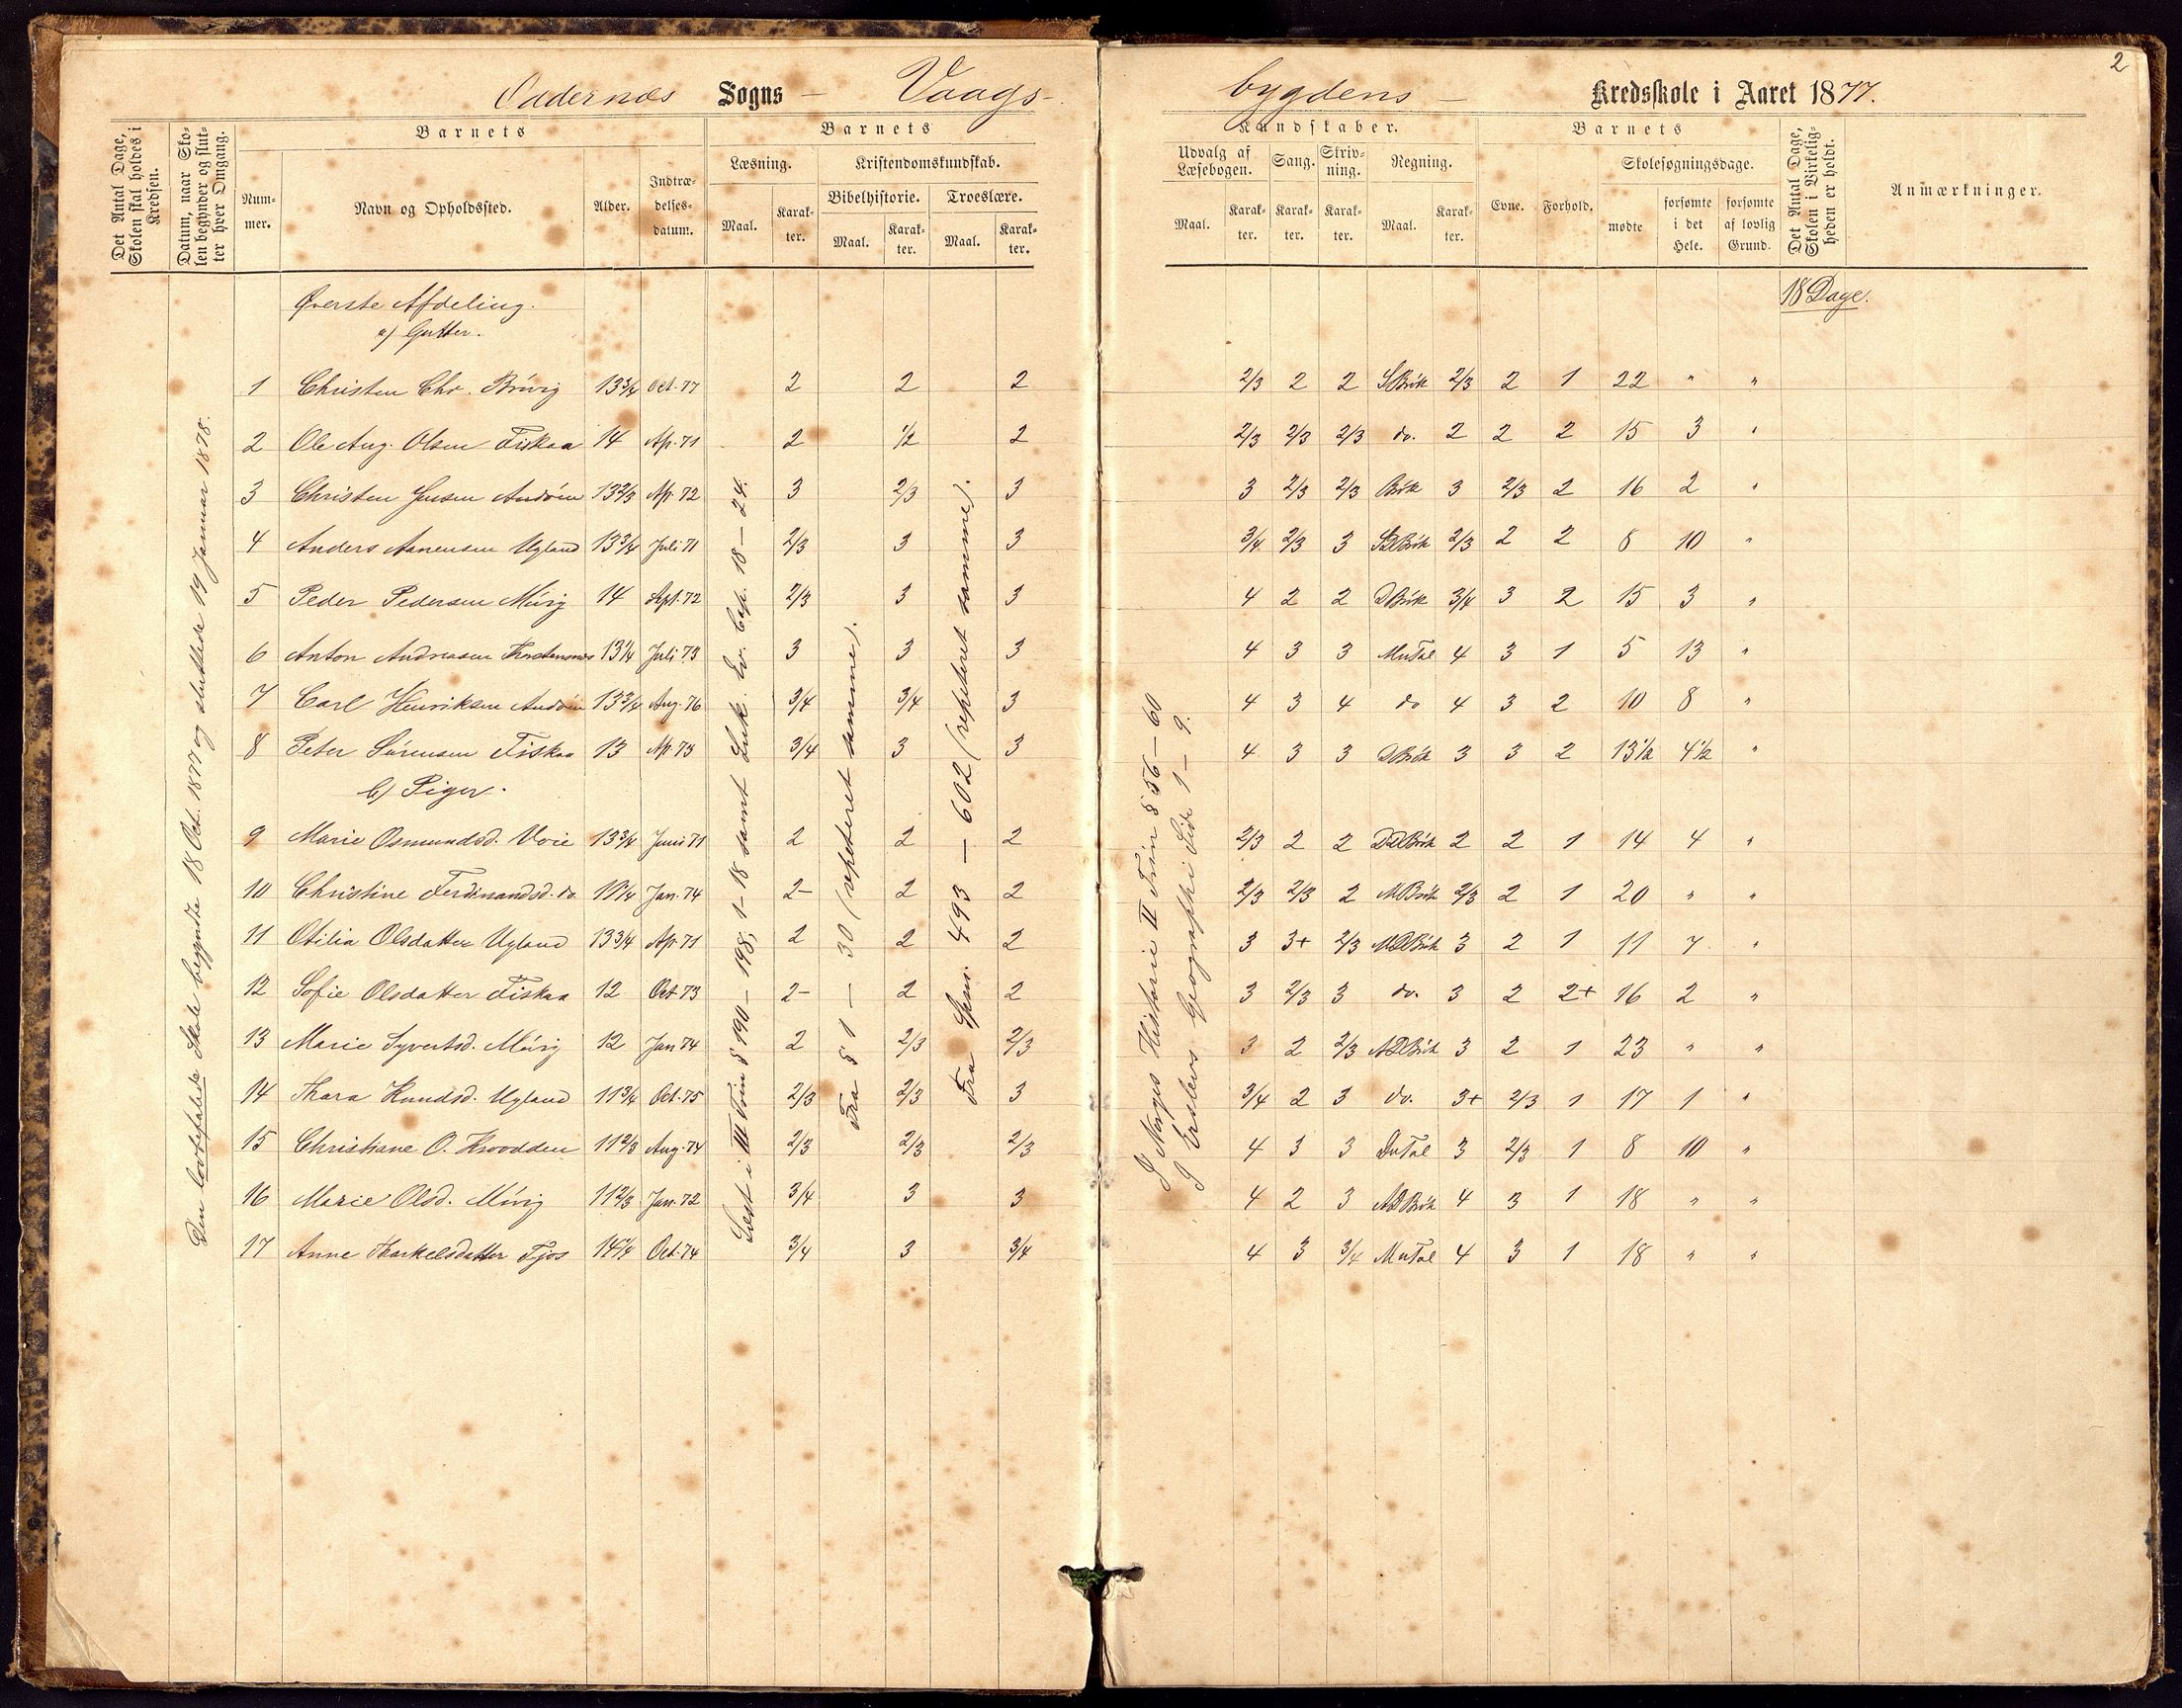 2
Oddernes Sogns – Vaags-
bygdens – Kredsskole i Aaret 1877.
Det Antal Dage, Skolen skal holdes i Kredsen.
Datum, naar Skolen begynder og slutter hver Omgang.
Barnets
Nummer.
Navn og Opholdssted.
Alder.
Indtrædelsesdatum.
Barnets
Læsning.
Maal.
Karakter.
Kristendomskundskab.
Bibelhistorie.
Maal.
Karakter.
Troeslære.
Maal.
Karakter.
Kundskaber.
Udvalg af Læsebogen.
Maal.
Karakter.
Sang.
Karakter.
Skrivning.
Karakter.
Regning.
Maal.
Karakter.
Barnets
Evne.
Forhold.
Skolesøgningsdage.
mødte
forsømte i det Hele.
forsømte af lovlig Grund.
Det Antal Dage, Skolen i Virkeligheden er holdt.
Anmærkninger.
Den lovbefalede Skole begyndte 18 Oct. 1877 og sluttede 19 Januar 1878.
Læst i III Trin § 190 – 198; 1 – 18 samt Luk. Ev. Cap. 18 – 24.
Fra § 1 – 30 (repeteret samme).
Fra Spm. 493 – 602 (repeteret samme).
I Norges Historie II Trin § 56 – 60
I Erslevs Geographi Side 1 – 9.
18 Dage.
Øverste Afdeling.
a) Gutter.
1 Christen Chr. Brøvig 13 3/4 Oct. 77 2 2 2 2/3 2 2 SBrøk 2/3 2 1 22 " "
2 Ole Aug. Olsen Fiskaa 14 Ap. 71 2 1/2 2 2/3 2/3 2/3 do. 2 2 2 15 3 "
3 Christen Jensen Andøen 13 2/3 Ap. 72 3 2/3 3 3 2/3 2/3 Brøk 3 2/3 2 16 2 "
4 Anders Aanensen Ugland 13 3/4 Juli 71 2/3 3 3 3/4 2/3 3 2/3 2 2 8 10 "
5 Peder Pedersen Myrig 14 Sept. 72 2/3 3 3 4 2 2 DBrøk 3/4 3 2 15 3 "
6 Anton Andreasen 13 1/4 Juli 73 3 3 3 4 3 3 MuTal 4 3 1 5 13 "
7 Carl Henriksen Andøen 13 3/4 Aug. 76 3/4 3/4 3 4 3 4 do 4 3 2 10 8 "
8 Peter Sørensen Fiskaa 13 Ap. 73 3/4 3 3 4 3 3 DBrøk 3 3 2 13 1/2 4 1/2 "
b) Piger.
9 Marie Osmundsd. Voie 13 3/4 Juni 71 2 2 2 2/3 2 2 DDBrøk 2 2 1 14 4 "
10 Christine Ferdinandsd. do. Jan. 74 2– 2 2 2/3 2/3 2 MBrøk 2/3 2 1 20 " "
11 Otilia Olsdatter Ugland 13 3/4 Ap. 71 2 2 2 3 3+ 2/3 MDBrøk 3 2 1 11 7 "
12 Sofie Olsdatter Fiskaa 12 Oct 73 2– 2 2 3 2/3 3 do. 3 2 2+ 16 2 "
13 Marie Syvertsd. Myrig 12 Jan 74 2 2/3 2/3 3 2 2/3 ADBrøk 3 2 1 23 " "
14 Thara Knudsd. Ugland 11 3/4 Oct. 75 2/3 2/3 3 3/4 2 3 do. 3+ 2/3 1 17 1 "
15 Christiane O. Kroodden 11 2/3 Aug. 74 2/3 2/3 2/3 4 3 3 DuTal 3 2/3 1 8 10 "
16 Marie Olsd. Myrig 11 2/3 Jan. 72 3/4 3 3 4 2 3 ADBrøk 4 3 1 18 " "
17 Anne Tharkelsdatter Fjos 14 1/4 Oct. 74 3/4 3 3/4 4 3 3/4 MuTal 4 3 1 18 " "